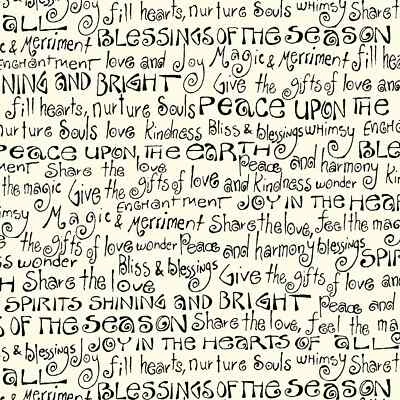 ALL Joy fill hearts, nurture Souls whimsy Share
BLESSINGS OF THE SEASON
& Merriment
ENCHANTMENT love and Joy Magic & Merriment fill hea
NING AND BRIGHT Give the gifts of love an
fill hearts, nurture Souls PEACE UPON THE
nurture Souls love Kindness Bliss & blessings whimsy ENCH
PEACE UPON, THE EARTH BLE
MENT Share the love Peace and harmony Ki
the magic Give the gifts of love and Kindness wonder
ENCHANTMENT JOY IN THE HEAR
msy Magic & Merriment Share the love, feel the mag
the gifts of love wonder Peace and harmony blessings SPIR
SS wonder Bliss & blessings
H Share the love Give the gifts of love an
SPIRITS SHINING AND BRIGHT Peace and
S OF THE SEASON Share the love, feel the ma
s & blessings JOY IN THE HEARTS OF ALL
ALL Joy fill hearts, nurture Souls whimsy Share
BLESSINGS OF THE SEASON